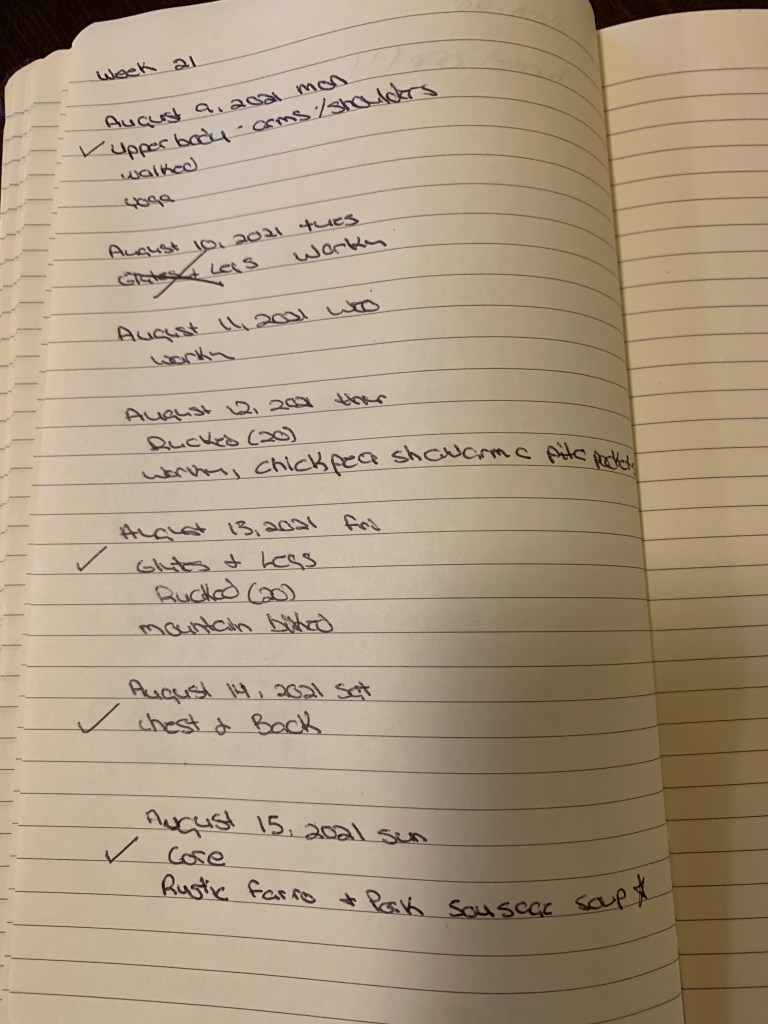 Week 21
August 9, 2021 mon
✓ Upper body - arms/shoulders
walked
yoga
August 10, 2021 tues
Glutes + Legs Workn
August 11, 2021 wed
workn
August 12, 2021 thur
Rucked (20)
workn, chickpea shawarma pita pockets
August 13, 2021 fri
✓ Glutes & Legs
Rucked (20)
mountain biked
August 14, 2021 sat
✓ Chest & Back
August 15, 2021 sun
✓ Core
Rustic farro + Pork sausage soup ★